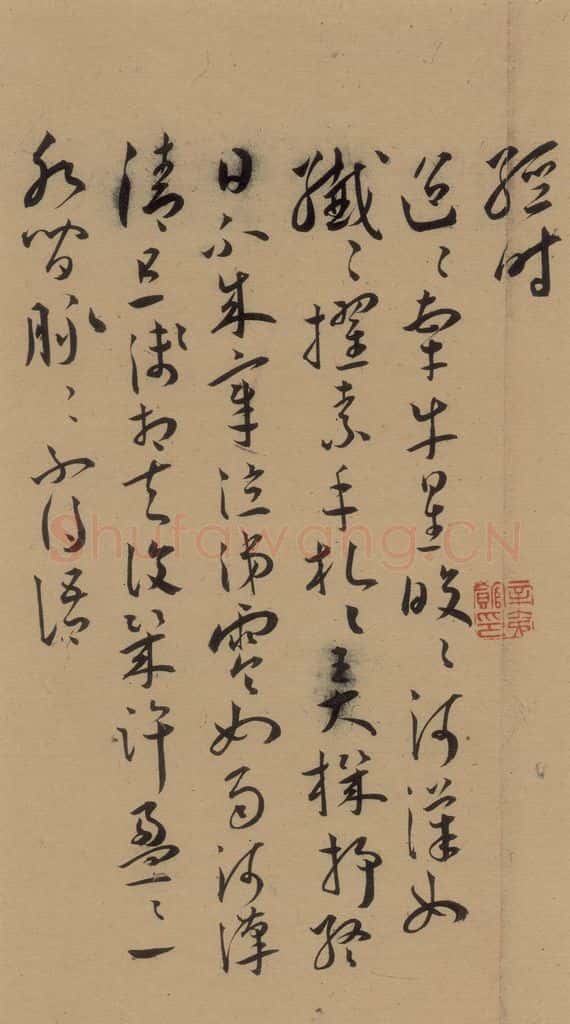 經時
迢〻牽牛星皎〻河漢女
纖〻擢素手札〻弄機杼終
日不成章泣涕零如雨河漢
清且淺相去復幾許盈〻一
水間脈〻不得語
辛夷館印
Shufawang.CN